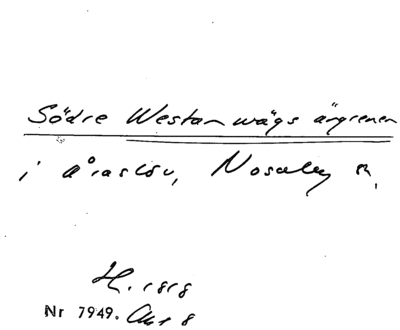 Södre Westanwägs ängrenen
i Åraslöv, Nosaby sn,
H. 1818
Nr 7949. Akt 8